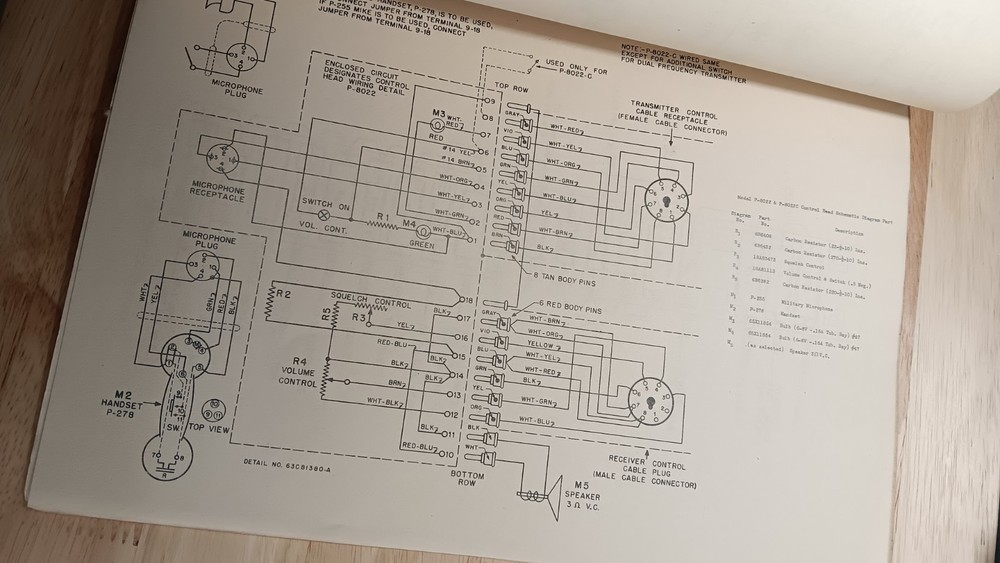 HANDSET, P-278, IS TO BE USED,
CONNECT JUMPER FROM TERMINAL 9-18
IF P-255 MIKE IS TO BE USED, CONNECT
JUMPER FROM TERMINAL 9-18
MICROPHONE
PLUG
ENCLOSED CIRCUIT
DESIGNATES CONTROL
HEAD WIRING DETAIL
P-8022
USED ONLY FOR
P-8022-C
NOTE:-P-8022-C WIRED SAME
EXCEPT FOR ADDITIONAL SWITCH
FOR DUAL FREQUENCY TRANSMITTER
TOP ROW
TRANSMITTER CONTROL
CABLE RECEPTACLE
(FEMALE CABLE CONNECTOR)
M3
WHT-
RED
RED
#14 YEL
#14 BRN
WHT-ORG
WHT-YEL
WHT-GRN
WHT-BLU
9
8
7
6
5
4
3
2
1
GRAY
VIO
BLU
GRN
YEL
ORG
RED
BRN
WHT-RED
WHT-YEL
WHT-ORG
WHT-GRN
WHT-BLU
YEL
WHT-BRN
BLK
MICROPHONE
RECEPTACLE
SWITCH ON
VOL. CONT.
R1
M4
GREEN
8 TAN BODY PINS
MICROPHONE
PLUG
WHT
GRN
RED
BLK
R2
SQUELCH CONTROL
R5
R3
YEL
RED-BLU
R4
VOLUME
CONTROL
BLK
BRN
WHT-BLK
BLK
BLK
BLK
BLK
RED-BLU
18
17
16
15
14
13
12
11
10
6 RED BODY PINS
GRAY
VIO
BLU
GRN
YEL
ORG
BLK
WHT
WHT-BRN
WHT-ORG
YELLOW
WHT-YEL
WHT-RED
BLK
WHT-GRN
WHT-BLU
M2
HANDSET
P-278
SW.
TOP VIEW
DETAIL NO. 63C81380-A
BOTTOM
ROW
M5
SPEAKER
3 Ω V.C.
RECEIVER CONTROL
CABLE PLUG
(MALE CABLE CONNECTOR)
Control Head Schematic Diagram Part
Diagram
No.
Part
No.
Description
Carbon Resistor
Carbon Resistor
Squelch Control
Volume Control & Switch
Carbon Resistor
P-255 Military Microphone
P-278 Handset
(as selected) Speaker